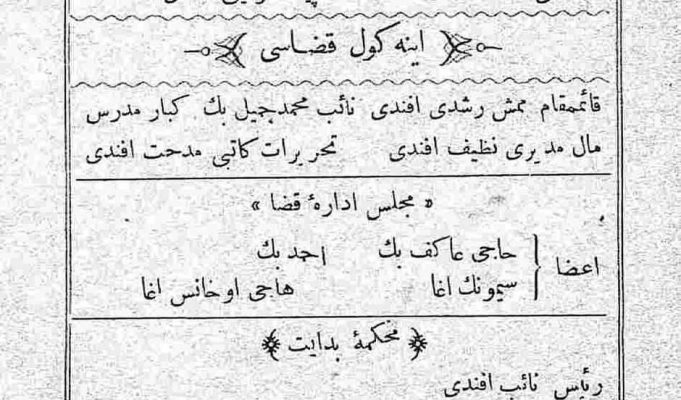 اینه كول قضاسی
قائممقام ممش رشدی افندی نائب محمدجمیل بك كبار مدرس
مال مدیری نظیف افندی تحریرات كاتبی مدحت افندی
« مجلس ادارهٔ قضا »
اعضا { حاجی عاكف بك احمد بك
سیمونك اغا هاجی اوخانس اغا
محكمهٔ بدایت
رئیس نائب افندی